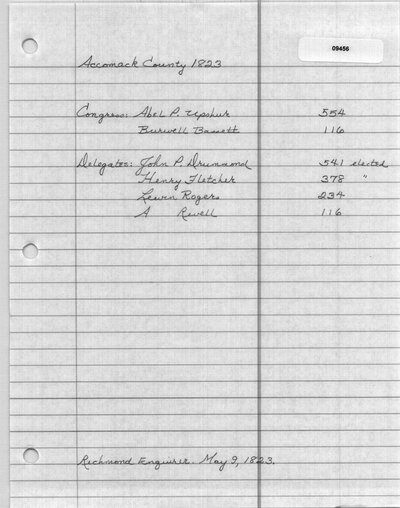 09456
Accomack County 1823
Congress: Abel P. Upshur 554
Burwell Bassett 116
Delegates: John P. Drummond 541 elected
Henry Fletcher 378 "
Lewin Rogers 234
A Revell 116
Richmond Enquirer. May 9, 1823.